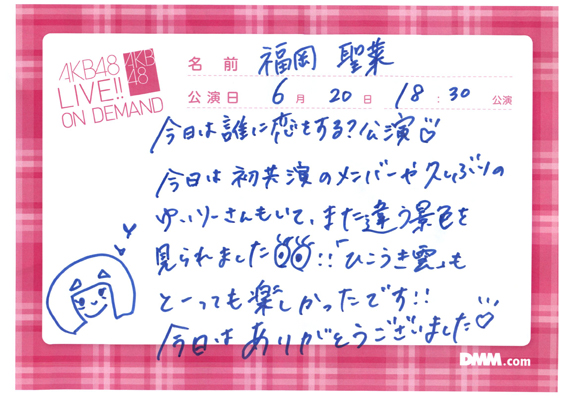 AKB48
LIVE!!
ON DEMAND
AKB
48
名 前 福岡 聖菜
公演日 6月 20日 18:30 公演
今日は誰に恋をする?公演♡
今日は初共演のメンバーや久しぶりの
ゆいりーさんもいて、また違う景色を
見られました!!「ひこうき雲」も
とーっても楽しかったです!!
今日はありがとうございました♡
DMM.com